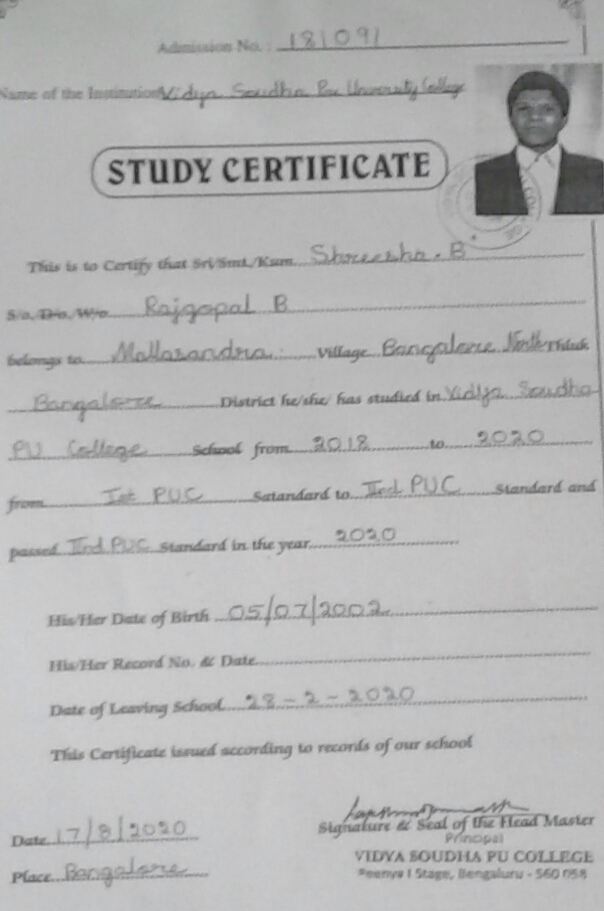 Admission No. : 181091
Name of the Institution Vidya Soudha Pu University College
STUDY CERTIFICATE
This is to Certify that Sri/Smt./Kum. Shreesha. B
S/o. D/o. W/o. Rajgopal B
belongs to Mallasandra Village Bangalore North Taluk
Bangalore District he/she/ has studied in Vidya Soudha
PU College School from 2018 to 2020
from Ist PUC Satandard to IInd PUC Standard and
passed IInd PUC Standard in the year 2020
His/Her Date of Birth 05/07/2002
His/Her Record No. & Date
Date of Leaving School 28-2-2020
This Certificate issued according to records of our school
Date 17/8/2020
Signature & Seal of the Head Master
Principal
Place Bangalore
VIDYA SOUDHA PU COLLEGE
Peenya I Stage, Bengaluru - 560 058